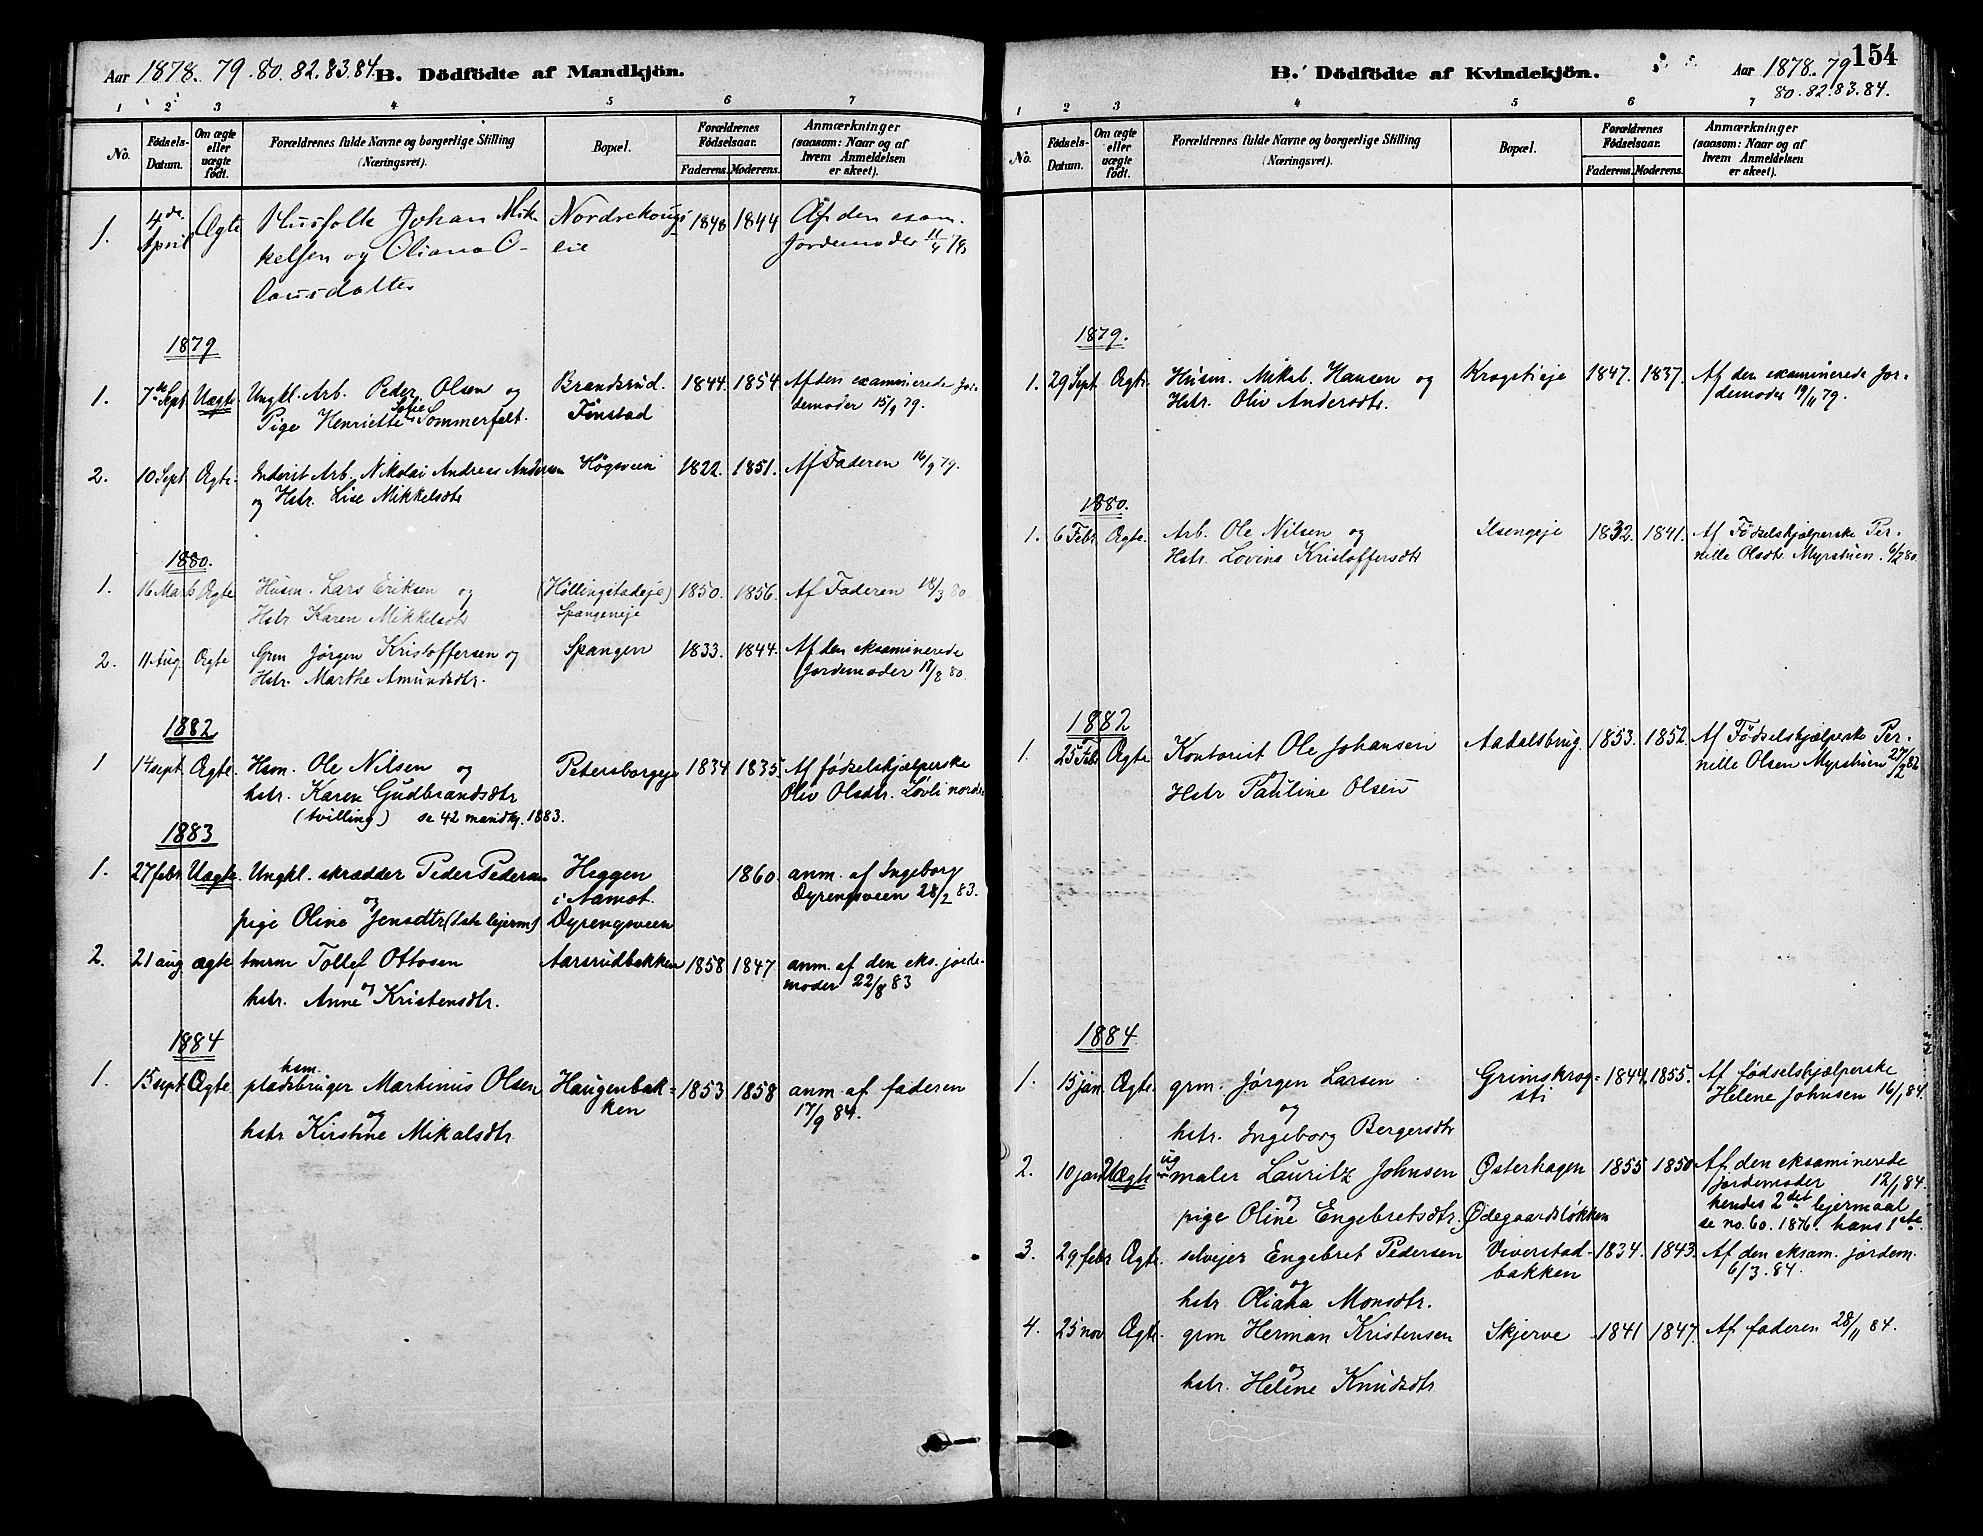 Aar 1878. 79. 80. 82. 83. 84. B. Dödfödte af Mandkjön.
1 2 3 4 5 6 7
No. Fødsels-Datum. Om ægte eller uægte født. Forældrenes fulde Navne og borgerlige Stilling (Næringsvei). Bopæl. Forældrenes Fødselsaar. Faderens. Moderens. Anmærkninger (saasom: Naar og af hvem Anmeldelsen er skeet).
1. 4de April Ægte Husfolk Johan Mik- Nordre 1848 1844 Af den exam.
kelsen og Oliana O- eie Jordemoder 11/4 78
lausdatter
1879
1. 7de Sept Uægte Ungkl. Arb. Peder Olsen og Brandsrud. 1844. 1854. Af den examinerede Jor-
Pige Henriette Sofie Sommerfelt. Finstad demoder 15/9 79.
2. 10 Sept Ægte. Inderst Arb. Nikolai Andreas Andersen Høgsveen 1822. 1851. Af Faderen 16/9 79.
og Hstr. Lise Mikkelsdtr
1880.
1. 16 Marts Ægte Husm. Lars Eriksen og (Hollingstadeje) 1850. 1856. Af Faderen 18/3 80.
Hstr. Karen Mikkelsdtr Spangeneje
2. 11 Aug. Ægte Grm Jörgen Kristoffersen og Spangen 1833. 1844. Af den eksaminerede
Hstr. Marthe Amundsdtr. Jordemoder 17/8 80.
1882
1 14 sept. Ægte. Hsm. Ole Nilsen og Petersborgeje 1834 1835. Af födselshjælperske
hstr. Karen Gudbrandsdtr Oliv Olsdtr. Løvli nordre
(tvilling) se 42 mandkj. 1883.
1883
1. 27 febr Uægte. Ungkl. skrædder Peder Pedersen Heggen 1860. anm. af Ingeborg
og i Aamot. Dyrengsveen 28/2 83.
pige Oline Jensdtr (1ste lejerm) Dyrengsveen
2. 21 aug ægte tmrm Tollef Ottosen Aarsrudbakken 1858 1847 anm. af den eks. jorde-
og moder 22/8 83
hstr. Anne Kristensdtr.
1884
1. 15 sept. Ægte. hsm. pladsbruger Martinus Olsen Haugenbak- 1853 1858 anm. af faderen
og ken 17/9 84.
hstr Kirstine Mikalsdtr.
154
B. Dödfödte af Kvindekjön. Aar 1878. 79
80. 82. 83. 84.
1 2 3 4 5 6 7
No. Fødsels-Datum. Om ægte eller uægte født. Forældrenes fulde Navne og borgerlige Stilling (Næringsvei). Bopæl. Forældrenes Fødselsaar. Faderens. Moderens. Anmærkninger (saasom: Naar og af hvem Anmeldelsen er skeet).
1879.
1. 29 Sept. Ægte. Husm. Mikal Hansen og Krogstieje 1847. 1837. Af den examinerede Jor-
Hstr. Oliv Andersdtr. demoder 19/11 79.
1880.
1. 6 Febr Ægte. Arb. Ole Nilsen og Ilsengeje 1832. 1841. Af Födselshjælperske Per-
Hstr. Lovina Kristoffersdtr nille Olsdtr Myrstuen. 6/2 80.
1882
1. 25 Feb Ægte Kontorist Ole Johansen Aadalsbrug 1853. 1852. Af Födselshjælperske Per-
og nille Olsen Myrstuen 27/2 82
Hstr Pauline Olsen
1884
1. 15 jan. Ægte. grm. Jørgen Larsen Grimskrog- 1844. 1855. Af födselshjælperske
og sti Helene Johnsen 16/1 84.
hstr. Ingeborg Bergersdtr
2. 10 jan Uægte ug maler Lauritz Johnsen Østerhagen 1855 1850 Af den eksaminerede
og jordemoder 12/1 84.
pige Oline Engebretsdtr. Ødegaardsløkken hendes 2det lejermaal
se no. 60. 1876. hans 1ste
3. 29 febr Ægte. selvejer Engebret Pedersen Viverstad- 1834. 1843. Af den eksam. jordem.
og bakken 6/3. 84.
hstr Oliana Monsdtr.
4. 25 nov Ægte. grm Herman Kristensen Skjerve 1841 1847. Af faderen 28/11 84.
og
hstr. Helene Knudsdtr